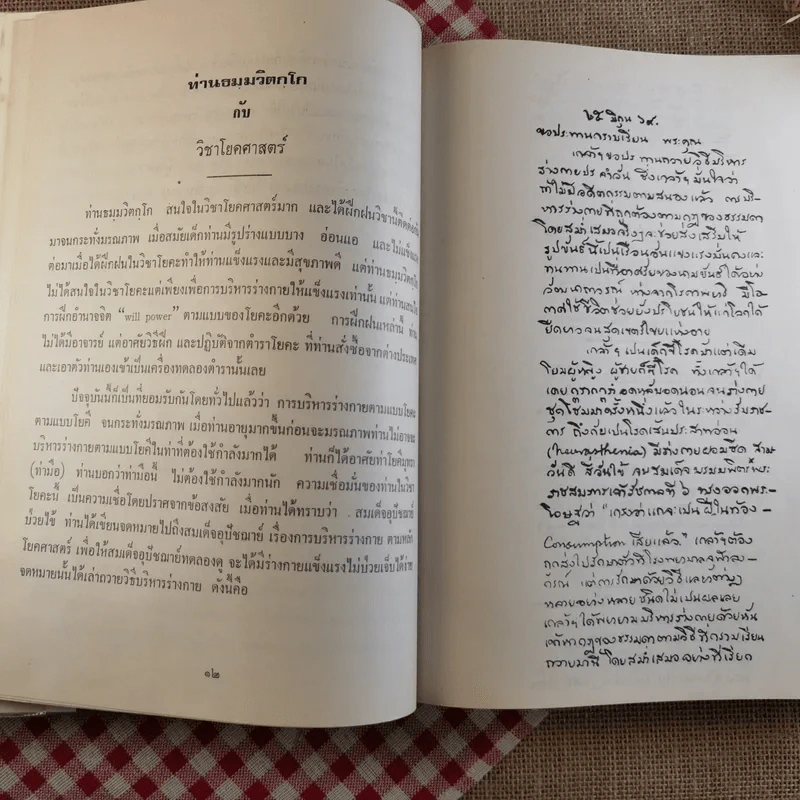 ท่านธมฺมวิตกฺโก
กับ
วิชาโยคศาสตร์
ท่านธมฺมวิตกฺโก สนใจในวิชาโยคศาสตร์มาก และได้ฝึกฝนวิชานี้ติดต่อ
มาจนกระทั่งมรณภาพ เมื่อสมัยเด็กท่านมีรูปร่างแบบบาง อ่อนแอ และไม่แข็ง
ต่อมาเมื่อได้ฝึกฝนในวิชาโยคะทำให้ท่านแข็งแรงและมีสุขภาพดี แต่ท่านธมฺมวิตกฺโก
ไม่ได้สนใจในวิชาโยคะแต่เพียงเพื่อการบริหารร่างกายให้แข็งแรงเท่านั้น แต่ท่าน
การฝึกอำนาจจิต "will power" ตามแบบของโยคะอีกด้วย การฝึกฝนเหล่านี้ ท่าน
ไม่ได้มีอาจารย์ แต่อาศัยวิธีฝึก และปฏิบัติจากตำราโยคะ ที่ท่านสั่งซื้อจากต่างประเทศ
และเอาตัวท่านเองเข้าเป็นเครื่องทดลองตำรานั้นเลย
ปัจจุบันนี้ก็เป็นที่ยอมรับกันโดยทั่วไปแล้วว่า การบริหารร่างกายตามแบบโยคะ
ตามแบบโยคี จนกระทั่งมรณภาพ เมื่อท่านอายุมากขึ้นก่อนจะมรณภาพท่านไม่อาจจะ
บริหารร่างกายตามแบบโยคีในท่าที่ต้องใช้กำลังมากได้ ท่านก็ได้อาศัยท่าโยคีมุทรา
(ท่ามือ) ท่านบอกว่าท่ามือนี้ ไม่ต้องใช้กำลังมากนัก ความเชื่อมั่นของท่านในวิชา
โยคะนี้ เป็นความเชื่อโดยปราศจากข้อสงสัย เมื่อท่านได้ทราบว่า สมเด็จอุปัชฌาย์
ป่วยไข้ ท่านได้เขียนจดหมายไปถึงสมเด็จอุปัชฌาย์ เรื่องการบริหารร่างกาย ตามหลัก
โยคศาสตร์ เพื่อให้สมเด็จอุปัชฌาย์ทดลองดู จะได้มีร่างกายแข็งแรงไม่ป่วยเจ็บได้ง่าย
จดหมายนั้นได้เล่าถวายวิธีบริหารร่างกาย ดังนี้คือ
๑๒
๖๕ มิถุน ๖๙.
ขอประทานกราบเรียน พระคุณ
เกล้าฯ ขอประทานถวายวิธีบริหาร
ร่างกายประจำวัน ซึ่งเกล้าฯ มั่นใจว่า
ถ้าไม่มีอดีตกรรมตามสนองแล้ว การบริ-
หารร่างกายที่ถูกต้องตามกฎของธรรมดา
โดยสม่ำเสมอจริงๆ จะช่วยส่งเสริมให้
รูปขันธ์นี้เป็นเรือนอันแข็งแรงมั่นคงและ
ทนทานเป็นที่อาศัยของนามขันธ์ได้อย่าง
วัฒนาถาวรณ์ ห่างจากโรคาพาธิ มีโอ
กาสใช้ชีวิตช่วยยังประโยชน์ให้แก่โลกได้
ยืดยาวจนสุดเขตร์ไขยแห่งอายุ
เกล้าฯ เป็นเด็กขี้โรคมาแต่เดิม
โยมผู้หญิง ผู้ชายก็ขี้โรค ทั้งเกล้าฯ ได้
เคยตรากตรำอดหลับอดนอนจนร่างกาย
ชุดโซมมาครั้งหนึ่งแล้วในระหว่างรับราช-
การ ถึงกับเป็นโรคเส้นประสาทอ่อน
(neurasthenia) มีร่างกายผอมซีด สาม
วันดี สี่วันไข้ จนสมเด็จบรมบพิตร์พระ
ราชสมภารเจ้ารัชกาลที่ ๖ ทรงออกพระ-
โอษฐ์ว่า "เกรงว่าแกจะเป็นฝีในท้อง
Consumption เสียแล้ว." เกล้าฯ ต้อง
ถูกส่งไปรักษาตัวที่โรงพยาบาลจุฬาลง-
กรณ์ แต่การรักษาด้วยวิธีแลยาต่างๆ
หลายอย่างหลายชนิดไม่เป็นผลเลย
เกล้าฯ ได้พยายามบริหารร่างกายด้วยหัน
เข้าหากฎของธรรมดาตามวิธีที่กราบเรียน
ถวายมานี้ โดยสม่ำเสมออย่างที่เรียก